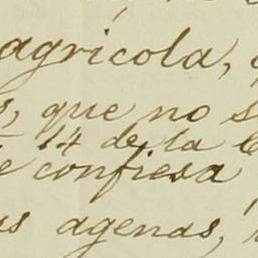 agrícola,
que no
14 de la
confiesa
agenas,